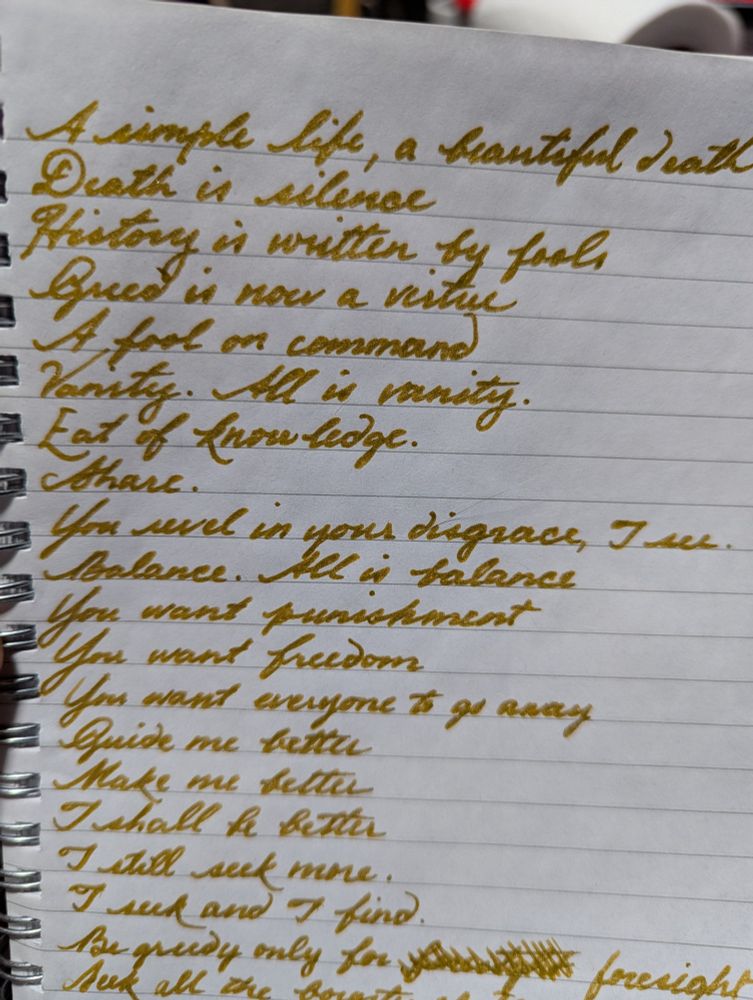 A simple life, a beautiful death
Death is silence
History is written by fools
Greed is now a virtue
A fool on command
Vanity. All is vanity.
Eat of knowledge.
Share.
You revel in your disgrace, I see.
Balance. All is balance
You want punishment
You want freedom
You want everyone to go away
Guide me better
Make me better
I shall be better
I still seek more.
I seek and I find.
Be greedy only for foresight
Seek all the